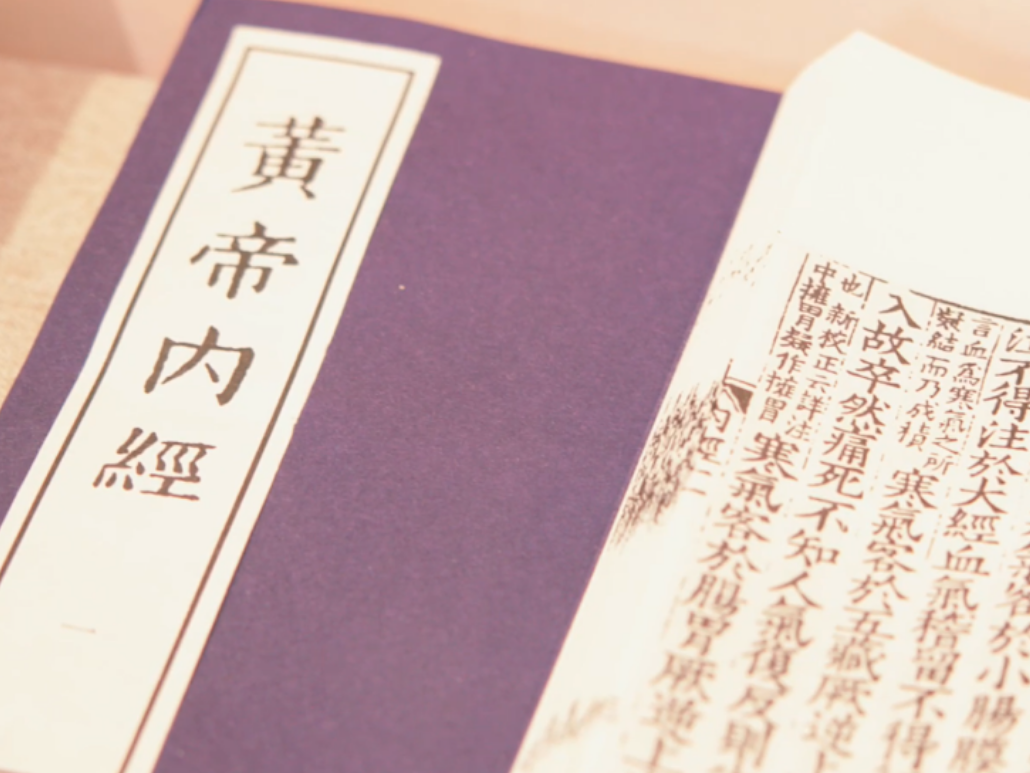 黃帝内經
一
氣客於小腸膜
注不得注於大經血氣稽留不得
言血爲寒氣之所
結而乃成積
寒氣客於五藏厥逆上
入故卒然痛死不知人氣復反則
也 新校正云詳注
中擁胃疑作擁冒
寒氣客於腸胃厥逆上
内經